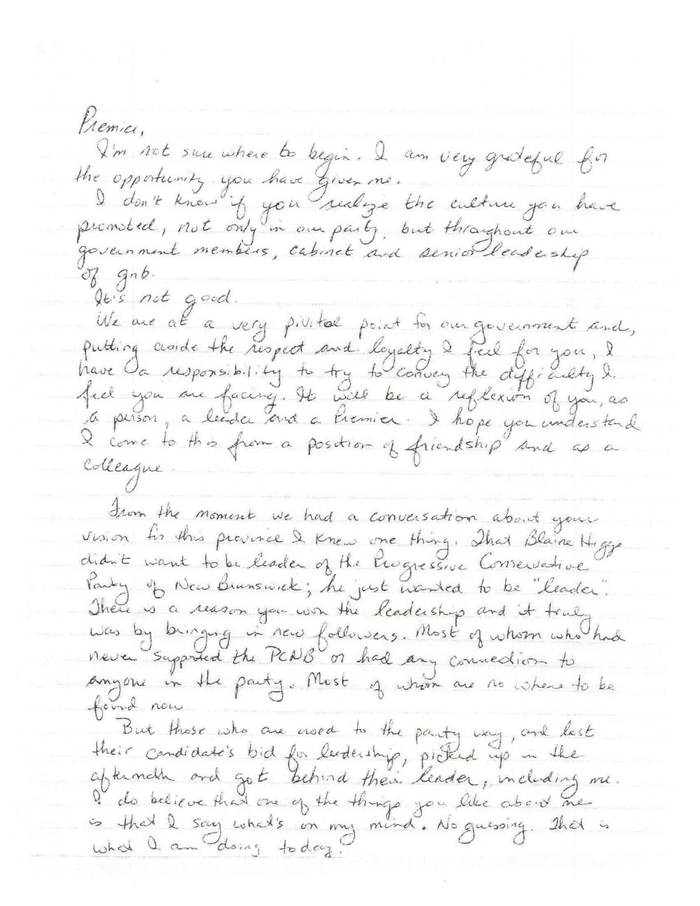 Premier,
I'm not sure where to begin. I am very grateful for
the opportunity you have given me.
I don't know if you realize the culture you have
promoted, not only in our party, but throughout our
government members, cabinet and senior leadership
of gnb.
It's not good.
We are at a very pivital point for our government and,
putting aside the respect and loyalty I feel for you, I
have a responsibility to try to convey the difficulty I
feel you are facing. It will be a reflexion of you, as
a person, a leader and a Premier. I hope you understand
I come to this from a position of friendship and as a
colleague.
From the moment we had a conversation about your
vision for this province I knew one thing. That Blaine Higgs
didn't want to be leader of the Progressive Conservative
Party of New Brunswick; he just wanted to be "leader".
There is a reason you won the leadership and it truly
was by bringing in new followers. Most of whom who had
never supported the PCNB or had any connections to
anyone in the party. Most of whom are no where to be
found now
But those who are used to the party way, and lost
their candidate's bid for leadership, picked up in the
aftermath and got behind their leader, including me.
I do believe that one of the things you like about me
is that I say what's on my mind. No guessing. That is
what I am doing today.